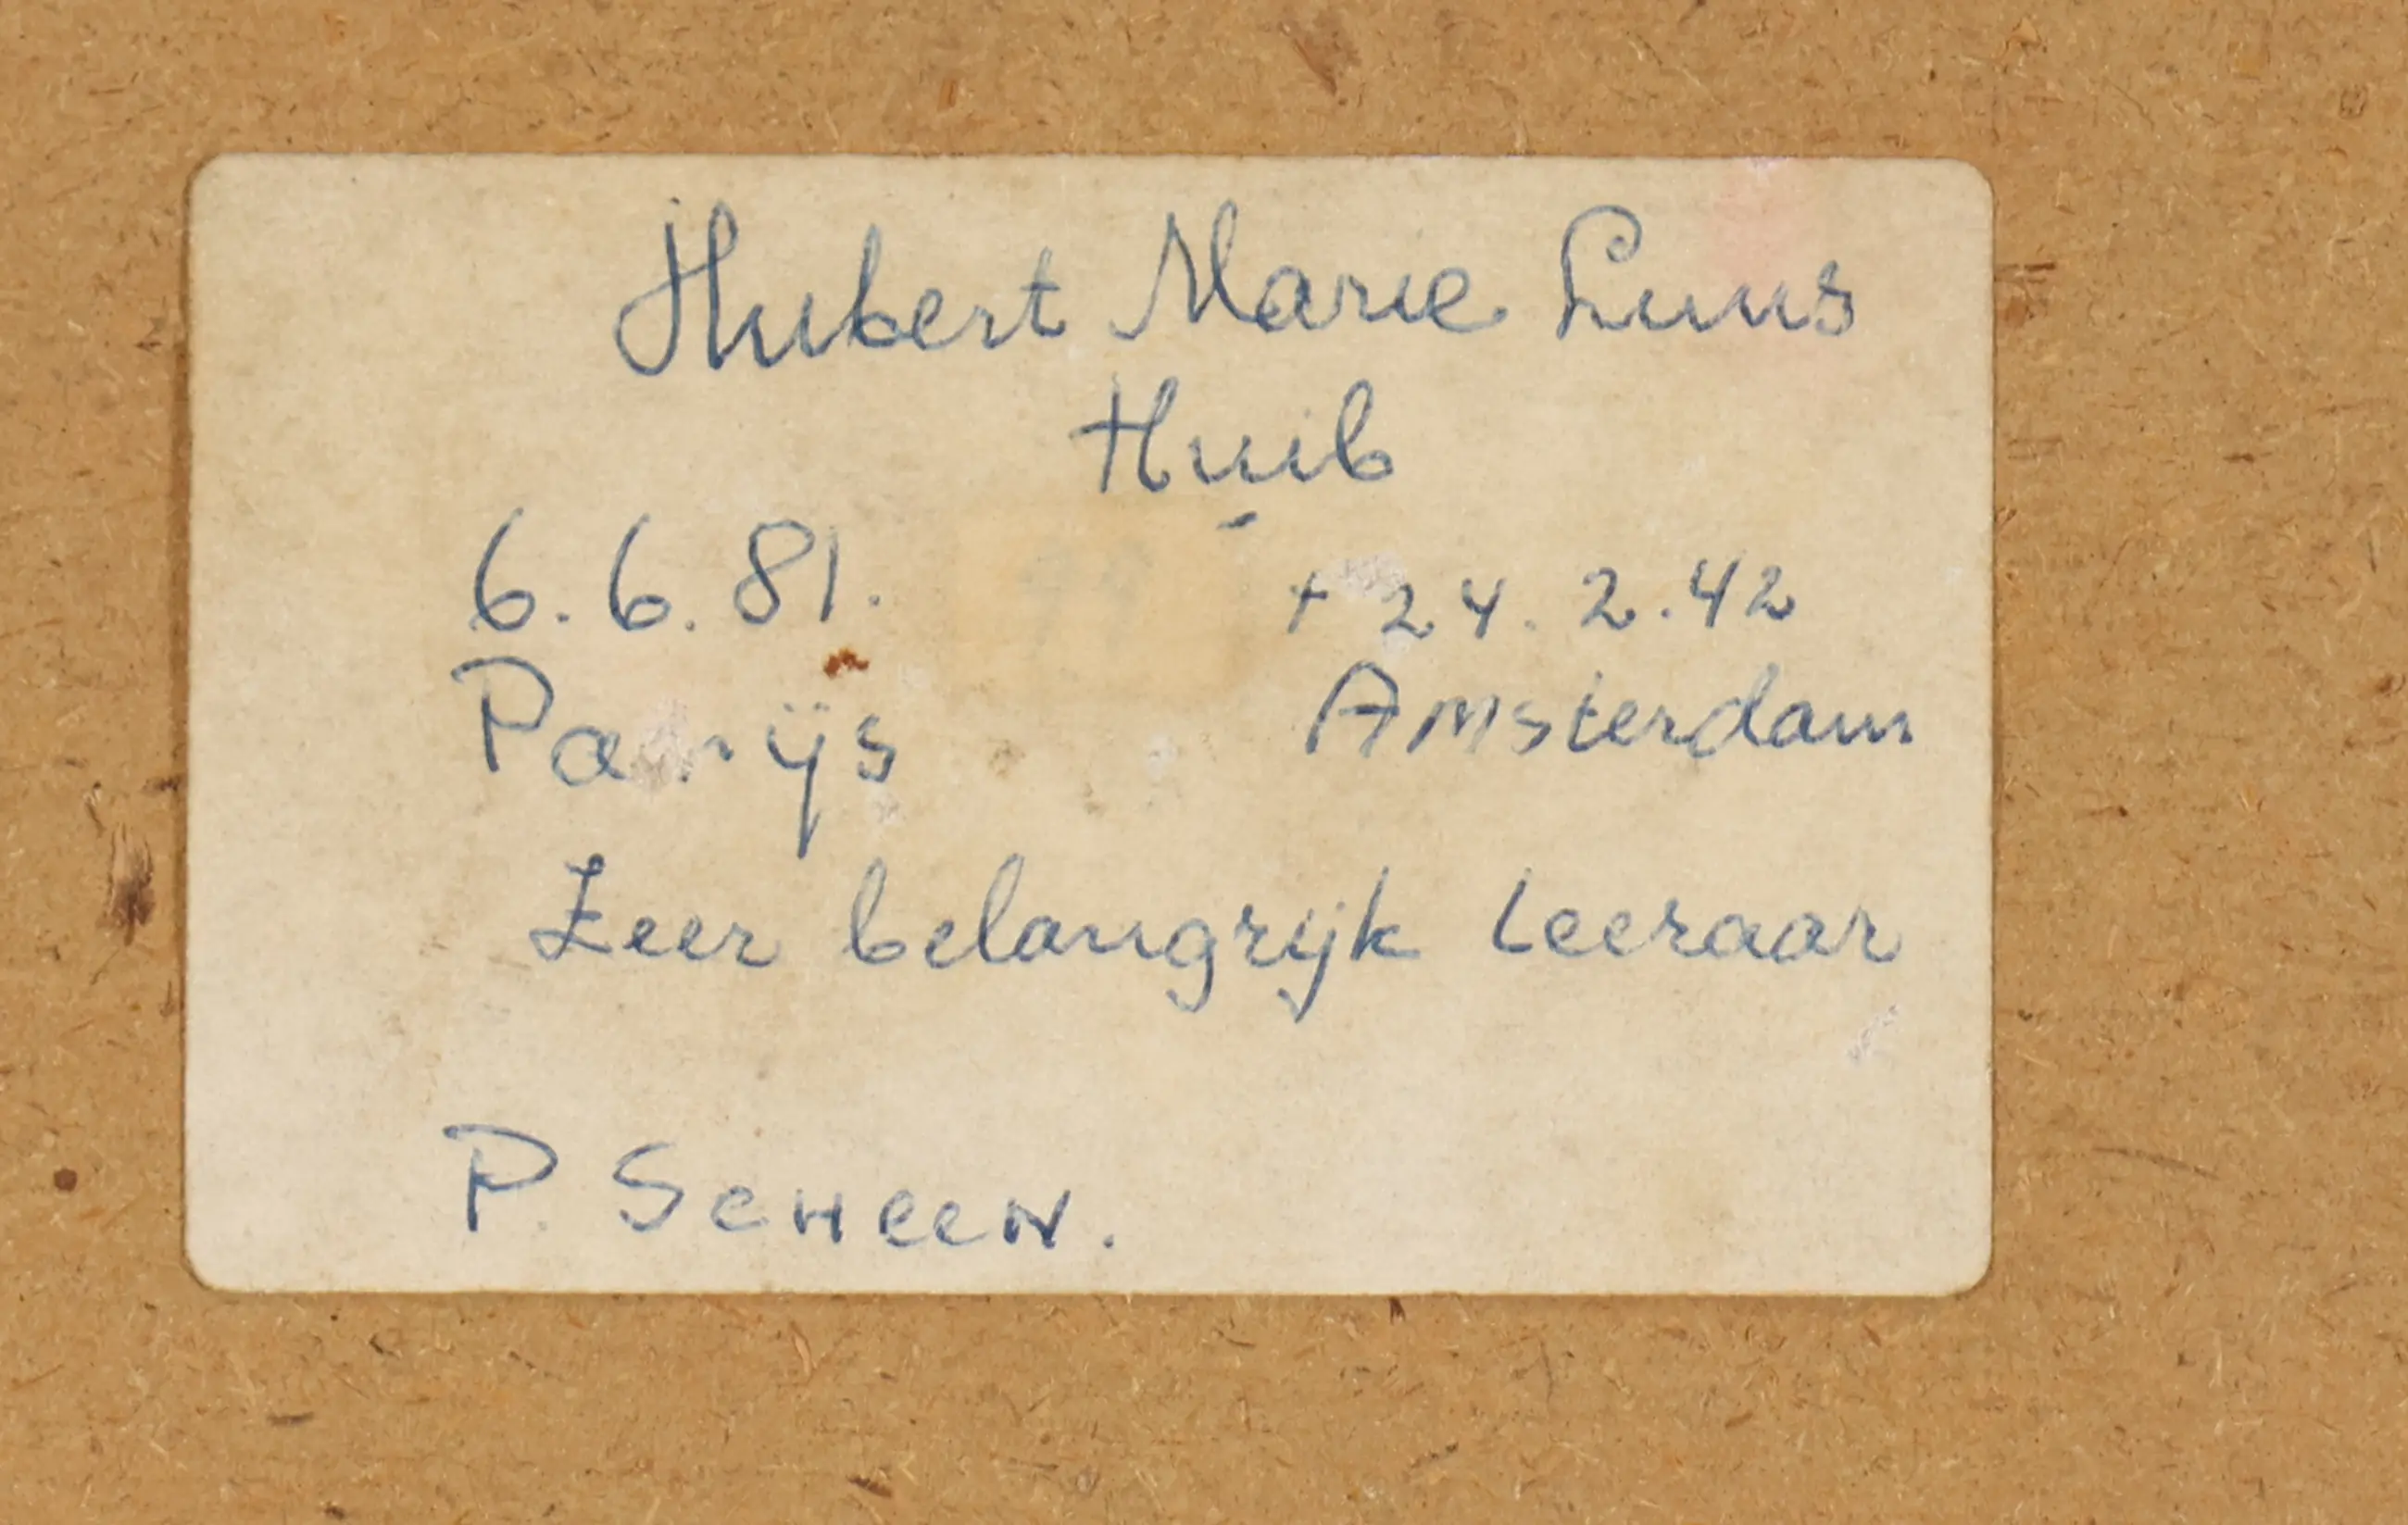 Hubert Marie Luns
Huib
6.6.81. + 24.2.42
Parijs Amsterdam
Zeer belangrijk leeraar
P. Scheen.